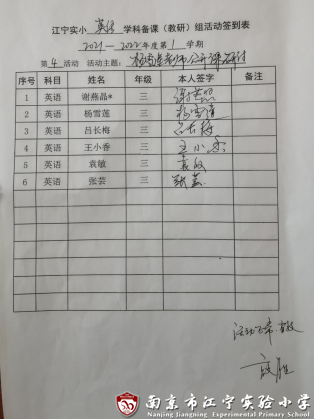 江宁实小 英语 学科备课（教研）组活动签到表
2021 - 2022 年度第 1 学期
第 4 活动 活动主题：
序号 科目 姓名 年级 本人签字 备注
1 英语 谢燕晶* 三 谢燕晶
2 英语 杨雪莲 三 杨雪莲
3 英语 吕长梅 三 吕长梅
4 英语 王小香 三 王小香
5 英语 袁敏 三 袁敏
6 英语 张芸 三 张芸
活动正常
南京市江宁实验小学
Nanjing Jiangning Experimental Primary School